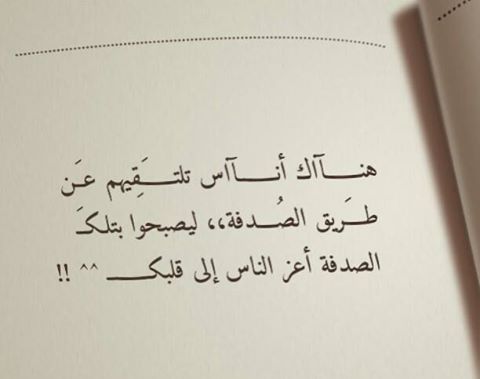 هنـــاآاك أنـــاآاس تلتـــــقِيهم عَـن
طـرَيق الصـُـدفة،، ليصبحوا بتلكـَ
الصدفة أعز الناس إلى قلبكـــــ ^^ !!